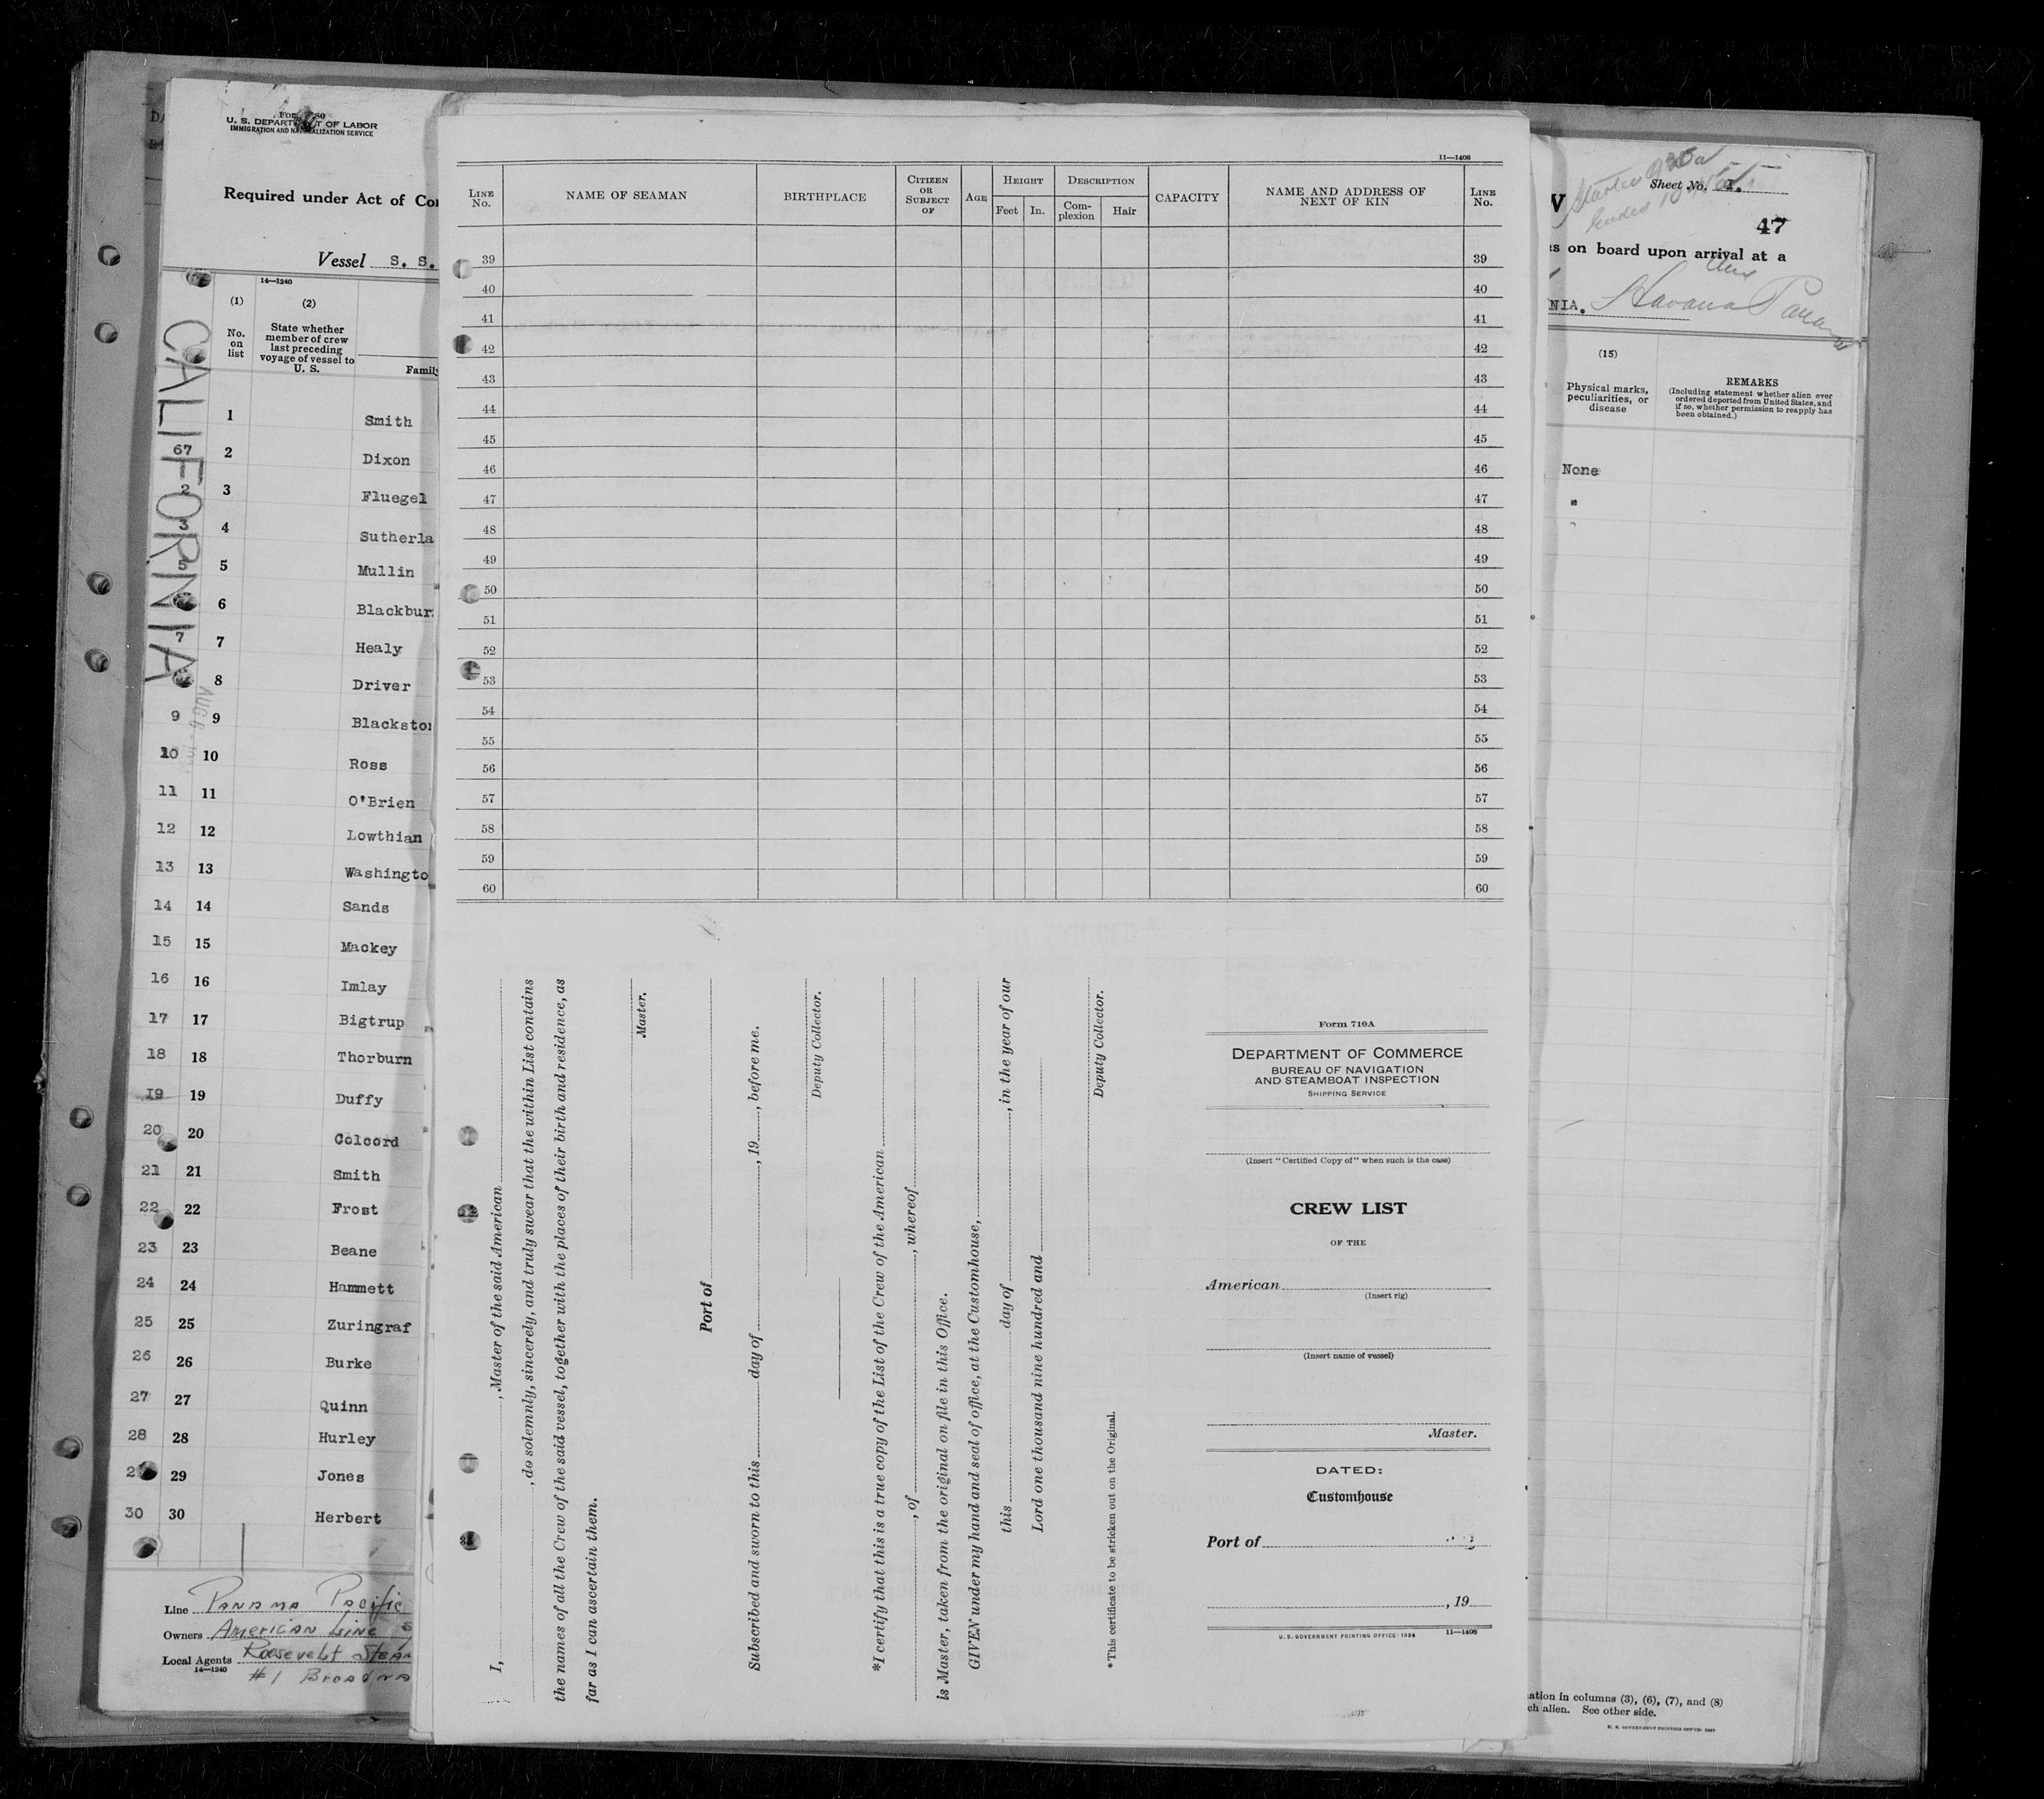 U. S. DEPARTMENT OF LABOR
IMMIGRATION AND NATURALIZATION SERVICE
Required under Act of Co
Vessel S. S.
14—1240
(1)
No. on list
(2)
State whether member of crew last preceding voyage of vessel to U. S.
Famil
CALIFORNIA
1 Smith
67 2 Dixon
2 3 Fluegel
3 4 Sutherla
5 5 Mullin
6 Blackbur
7 7 Healy
8 Driver
9 9 Blacksto
10 10 Ross
11 11 O'Brien
12 12 Lowthian
13 13 Washingto
14 14 Sands
15 15 Mackey
16 16 Imlay
17 17 Bigtrup
18 18 Thorburn
19 19 Duffy
20 20 Colcord
21 21 Smith
22 22 Frost
23 23 Beane
24 24 Hammett
25 25 Zuringraf
26 26 Burke
27 27 Quinn
28 28 Hurley
29 Jones
30 30 Herbert
Line Panama Pacific
Owners American Line S
Local Agents Roosevelt Stea
14—1240
#1 Broadwa
11—1408
LINE No.
NAME OF SEAMAN
BIRTHPLACE
CITIZEN OR SUBJECT OF
AGE
HEIGHT
Feet In.
DESCRIPTION
Complexion Hair
CAPACITY
NAME AND ADDRESS OF NEXT OF KIN
LINE No.
39 39
40 40
41 41
42 42
43 43
44 44
45 45
46 46
47 47
48 48
49 49
50 50
51 51
52 52
53 53
54 54
55 55
56 56
57 57
58 58
59 59
60 60
I, , Master of the said American
, do solemnly, sincerely, and truly swear that the within List contains
the names of all the Crew of the said vessel, together with the places of their birth and residence, as
far as I can ascertain them.
Master.
Port of
Subscribed and sworn to this day of , 19 , before me.
Deputy Collector.
*I certify that this is a true copy of the List of the Crew of the American
, of , whereof
is Master, taken from the original on file in this Office.
GIVEN under my hand and seal of office, at the Customhouse,
this day of , in the year of our
Lord one thousand nine hundred and
Deputy Collector.
*This certificate to be stricken out on the Original.
Form 710A
DEPARTMENT OF COMMERCE
BUREAU OF NAVIGATION
AND STEAMBOAT INSPECTION
SHIPPING SERVICE
(Insert "Certified Copy of" when such is the case)
CREW LIST
OF THE
American
(Insert rig)
(Insert name of vessel)
Master.
DATED:
Customhouse
Port of
, 19
U. S. GOVERNMENT PRINTING OFFICE: 1934 11—1408
Sheet No.
47
W
s on board upon arrival at a
NIA. Havana Panama
(15)
Physical marks, peculiarities, or disease
REMARKS
(Including statement whether alien ever ordered deported from United States, and if so, whether permission to reapply has been obtained.)
None
"
ation in columns (3), (6), (7), and (8)
ch alien. See other side.